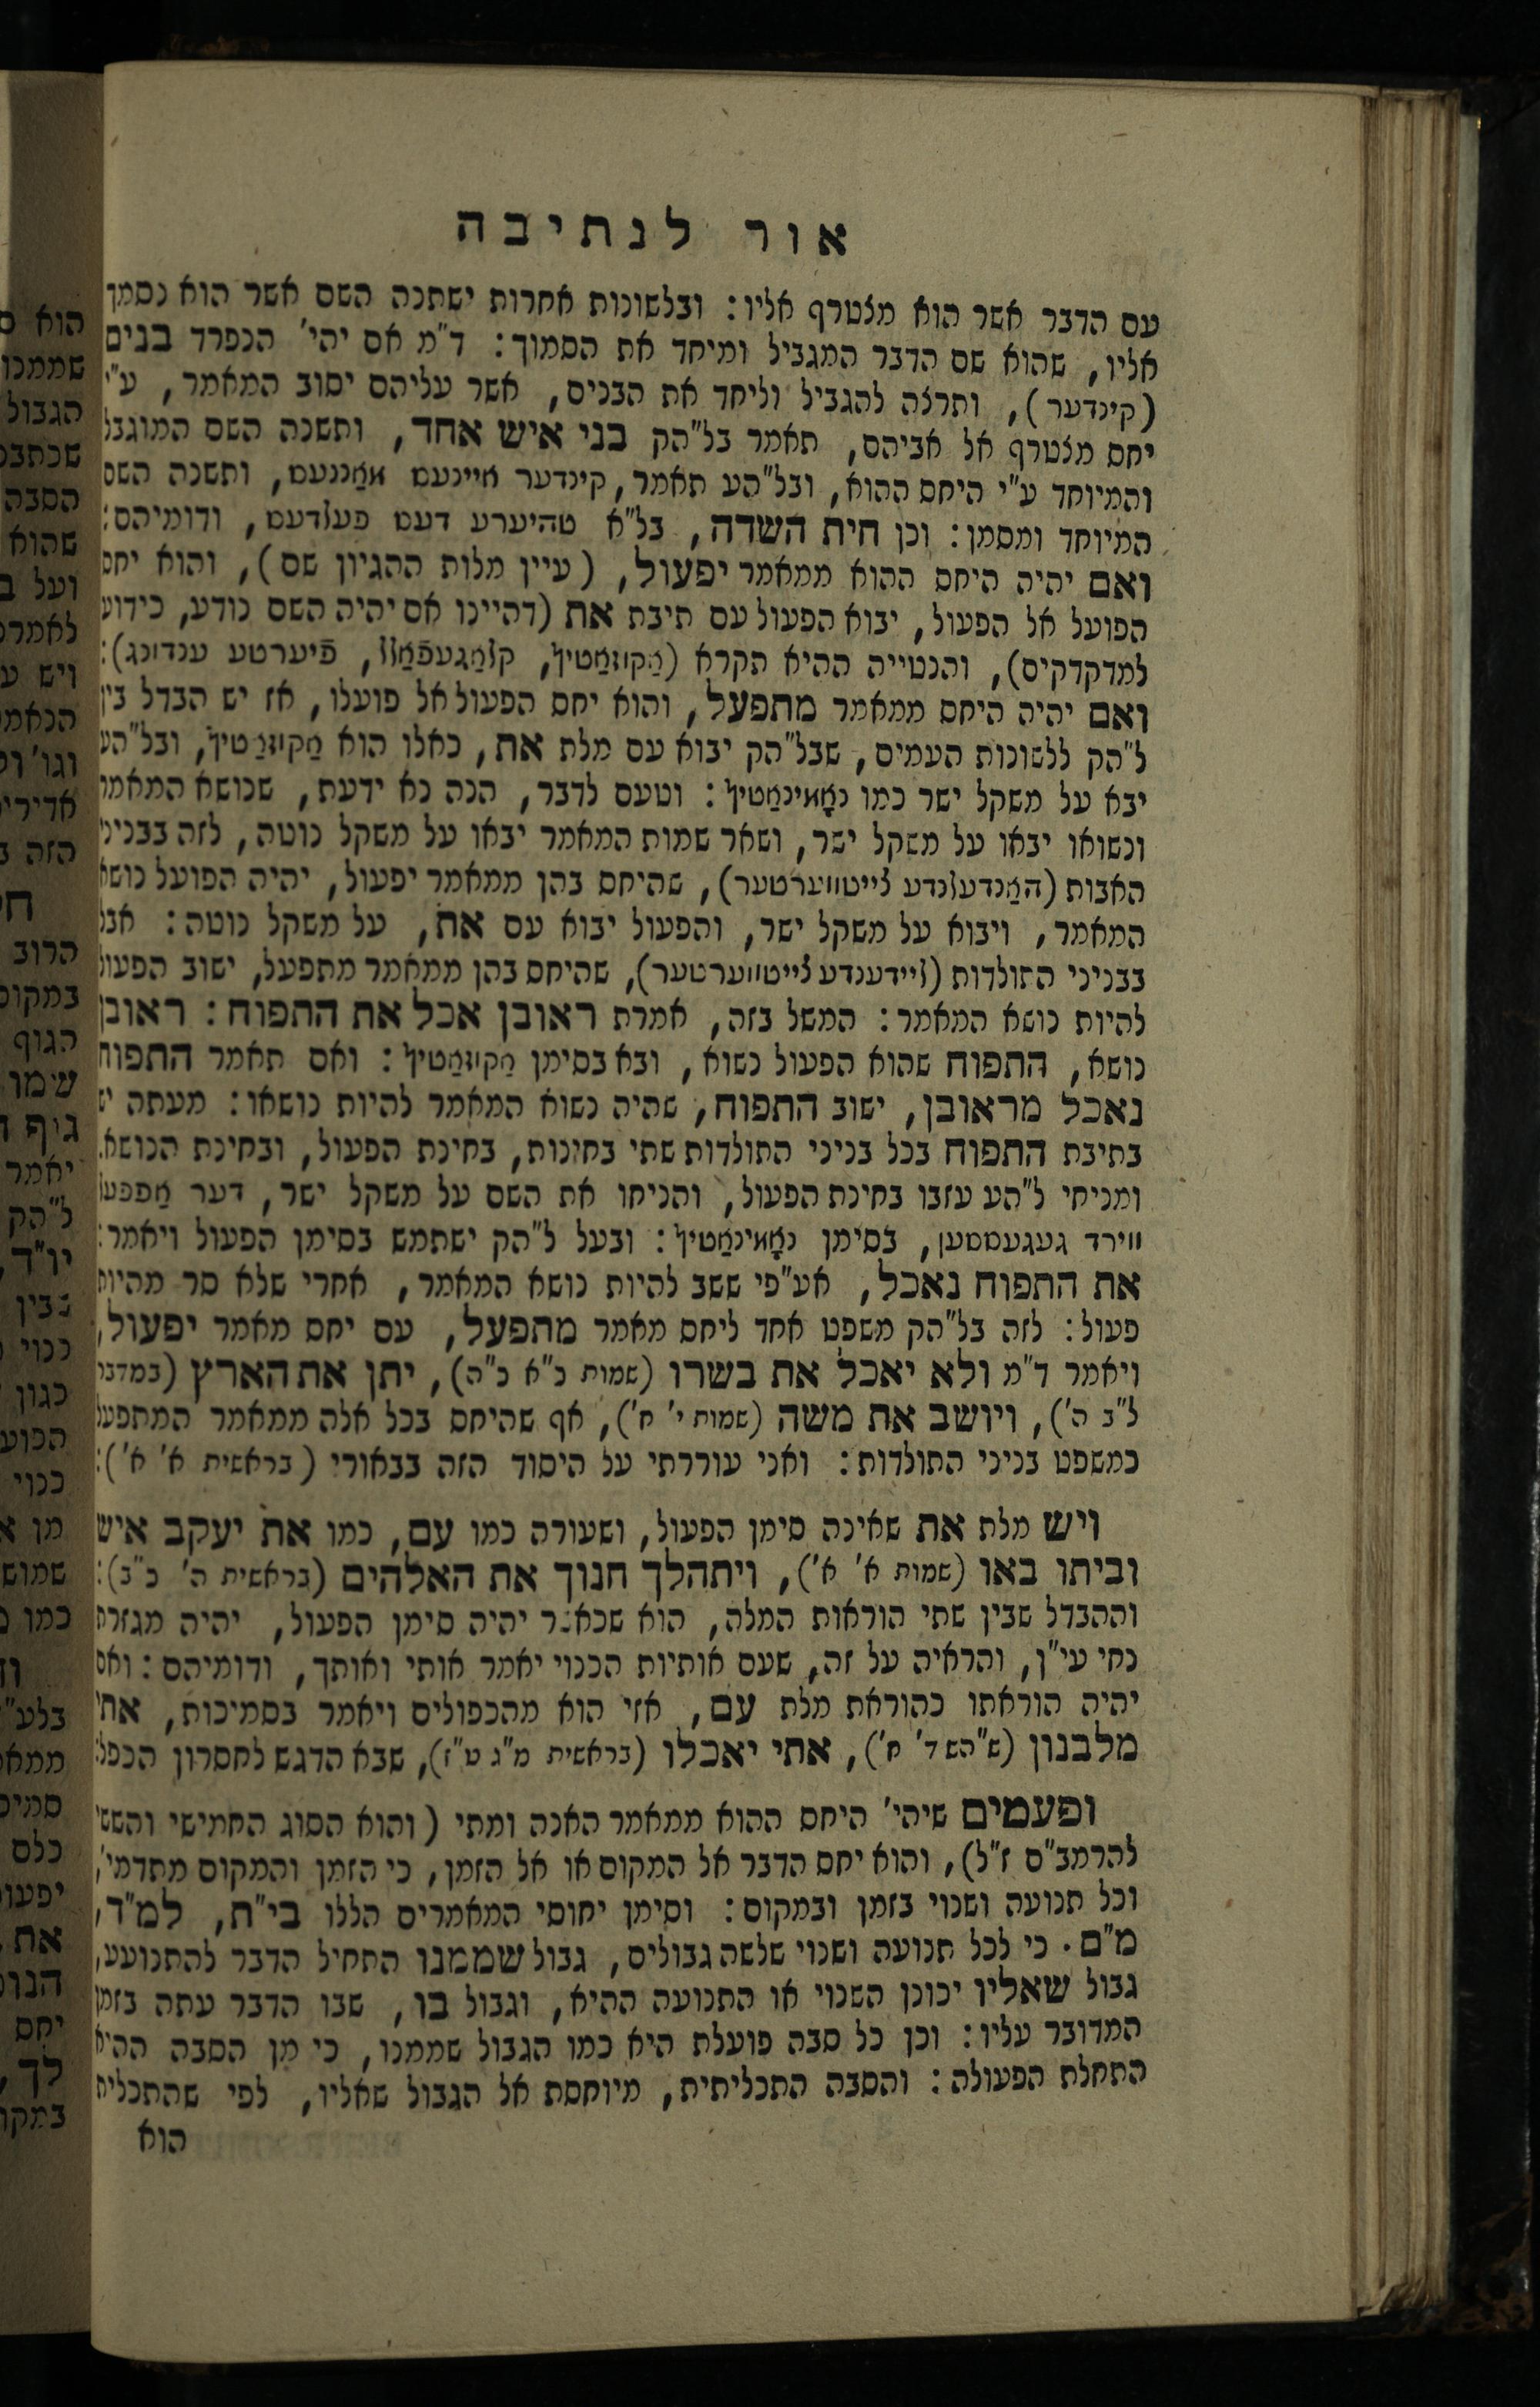 אור לנתיבה
עם הדבר אשר הוא מצטרף אליו: ובלשונות אחרות ישתנה השם אשר הוא נסמך
אליו, שהוא שם הדבר המגביל ומיחד את הסמוך: ד"מ אם יהי' הנפרד בנים
(קינדער), ותרצה להגביל וליחד את הבנים, אשר עליהם יסוב המאמר, ע"י
יחס מצטרף אל אביהם, תאמר בל"הק בני איש אחד, ותשנה השם המוגבל
והמיוחד ע"י היחס ההוא, ובל"הע תאמר, קינדער איינעס מאַננעס, ותשנה השם
המיוחד ומסמן: וכן חית השדה, בל"א טהיערע דעס פעלדעס, ודומיהם:
ואם יהיה היחס ההוא ממאמר יפעול, (עיין מלות ההגיון שם), והוא יחס
הפועל אל הפעול, יבוא הפעול עם תיבת את (דהיינו אם יהיה השם נודע, כידוע
למדקדקים), והנטייה ההיא תקרא (אַקוזאַטיף, קלאַגעפֿאַלל, פֿיערטע ענדונג):
ואם יהיה היחס ממאמר מתפעל, והוא יחס הפעול אל פועלו, אז יש הבדל בין
ל"הק ללשונות העמים, שבל"הק יבוא עם מלת את, כאלו הוא אַקוזאַטיף, ובל"הע
יבא על משקל ישר כמו נאָמינאַטיף: וטעם לדבר, הנה נא ידעת, שנושא המאמר
ונשואו יבאו על משקל ישר, ושאר שמות המאמר יבאו על משקל נוטה, לזה בבניני
האבות (האַנדעלנדע צייטווערטער), שהיחס בהן ממאמר יפעול, יהיה הפועל נושא
המאמר, ויבוא על משקל ישר, והפעול יבוא עם את, על משקל נוטה: אבל
בבניני התולדות (ליידענדע צייטווערטער), שהיחס בהן ממאמר מתפעל, ישוב הפעול
להיות נושא המאמר: המשל בזה, אמרת ראובן אכל את התפוח: ראובן
נושא, התפוח שהוא הפעול נשוא, ובא בסימן אַקוזאַטיף: ואם תאמר התפוח
נאכל מראובן, ישוב התפוח, שהיה נשוא המאמר להיות נושאו: מעתה יש
בתיבת התפוח בכל בניני התולדות שתי בחינות, בחינת הפעול, ובחינת הנושא.
ומניחי ל"הע עזבו בחינת הפעול, והניחו את השם על משקל ישר, דער אַפפעל
ווירד געגעססען, בסימן נאָמינאַטיף: ובעל ל"הק ישתמש בסימן הפעול ויאמר:
את התפוח נאכל, אע"פי ששב להיות נושא המאמר, אחרי שלא סר מהיות
פעול: לזה בל"הק משפט אחד ליחס מאמר מתפעל, עם יחס מאמר יפעול,
ויאמר ד"מ ולא יאכל את בשרו (שמות כ"א כ"ה), יתן את הארץ (במדבר
ל"ב ה'), ויושב את משה (שמות י' ח'), אף שהיחס בכל אלה ממאמר המתפעל
כמשפט בניני התולדות: ואני עוררתי על היסוד הזה בבאורי (בראשית א' א'):
ויש מלת את שאינה סימן הפעול, ושעורה כמו עם, כמו את יעקב איש
וביתו באו (שמות א' א'), ויתהלך חנוך את האלהים (בראשית ה' כ"ב):
וההבדל שבין שתי הוראות המלה, הוא שכאשר יהיה סימן הפעול, יהיה מגזרת
נחי עי"ן, והראיה על זה, שעם אותיות הכנוי יאמר אותי ואותך, ודומיהם: ואם
יהיה הוראתו כהוראת מלת עם, אזי הוא מהכפולים ויאמר בסמיכות, אתי
מלבנון (ש"הש ד' ח'), אתי יאכלו (בראשית מ"ג ט"ז), שבא הדגש לחסרון הכפל:
ופעמים שיהי' היחס ההוא ממאמר האנה ומתי (והוא הסוג החמישי והששי
להרמב"ם ז"ל), והוא יחס הדבר אל המקום או אל הזמן, כי הזמן והמקום מתדמי',
וכל תנועה ושנוי בזמן ובמקום: וסימן יחוסי המאמרים הללו בי"ת, למ"ד,
מ"ם. כי לכל תנועה ושנוי שלשה גבולים, גבול שממנו התחיל הדבר להתנועע,
גבול שאליו יכוון השנוי או התנועה ההיא, וגבול בו, שבו הדבר עתה בזמן
המדובר עליו: וכן כל סבה פועלת היא כמו הגבול שממנו, כי מן הסבה ההיא
התחלת הפעולה: והסבה התכליתית, מיוחסת אל הגבול שאליו, לפי שהתכלית
הוא